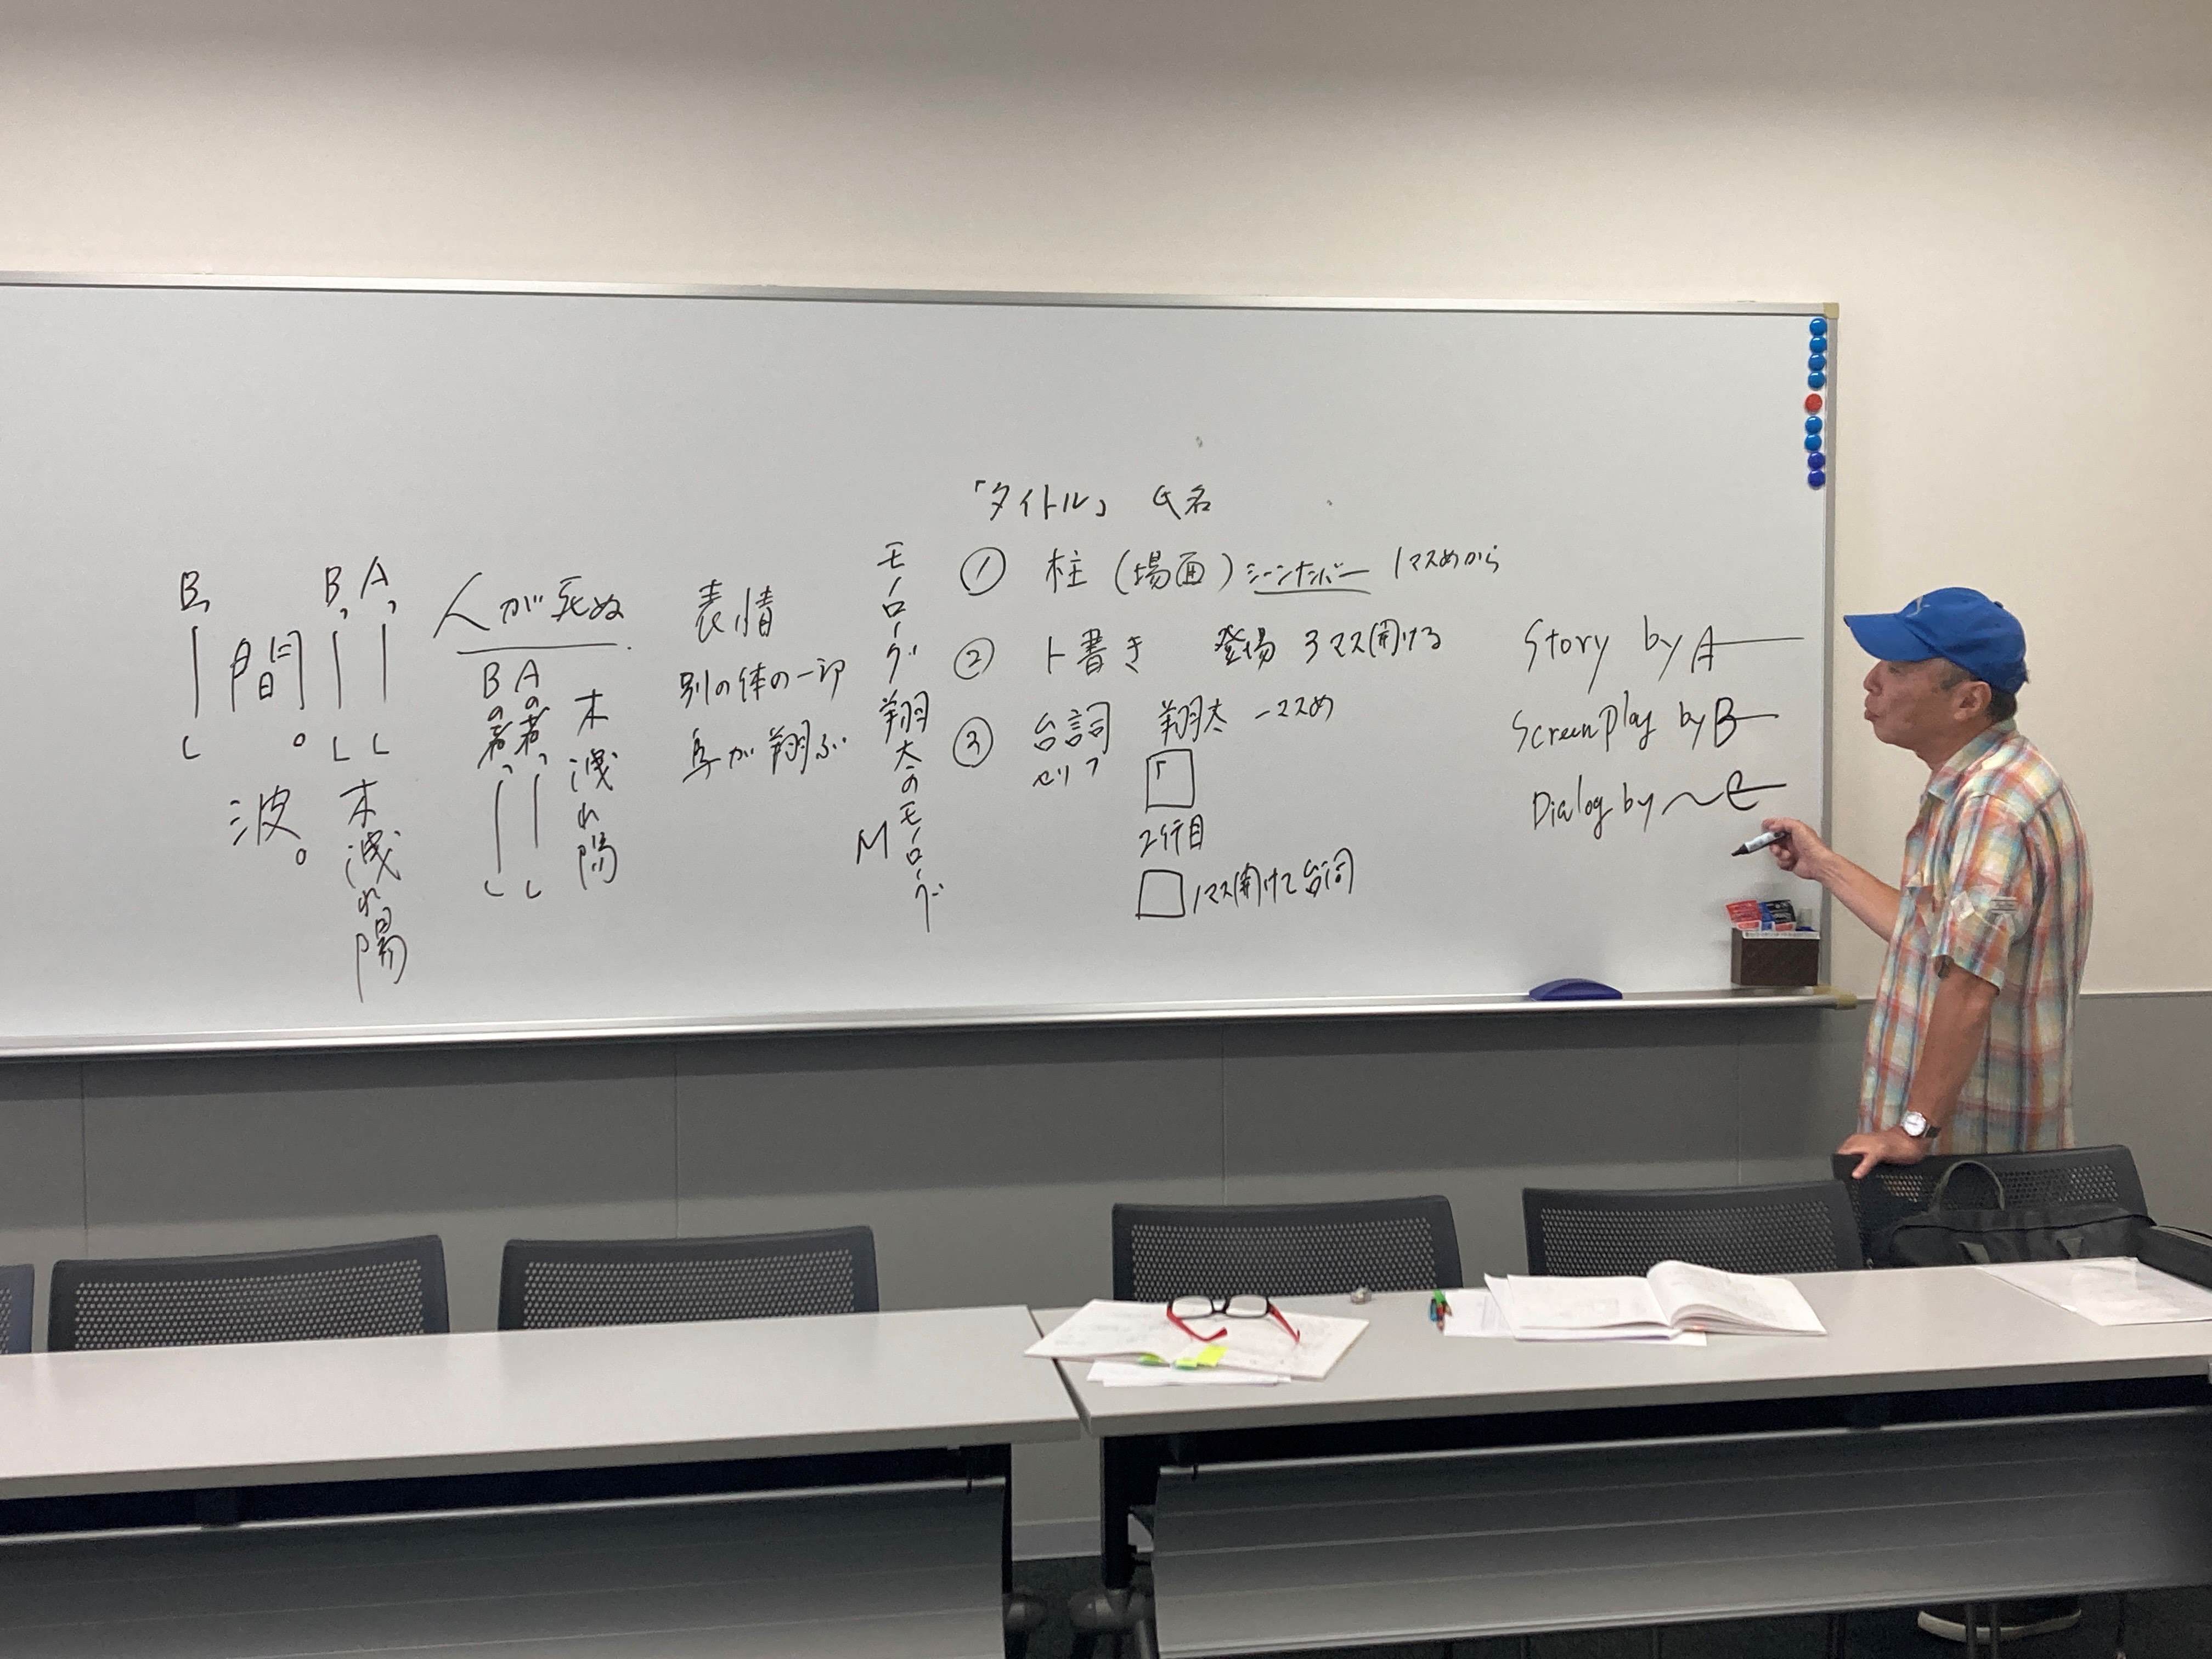 「タイトル」 氏名
① 柱 (場面) シーンナンバー 1マスめから
② ト書き 登場 3マス開ける
③ 台詞 翔太 一マスめ
セリフ
「
2行目
1マス開けて台詞
Story by A
Screenplay by B
Dialog by 〜C
モノローグ
翔太のモノローグ
M
表情
別の体の一部
鳥が翔ぶ
人が死ぬ
木洩れ陽
Aの著、
Bの著、
A、
B、
木洩れ陽
間。
波。
B、